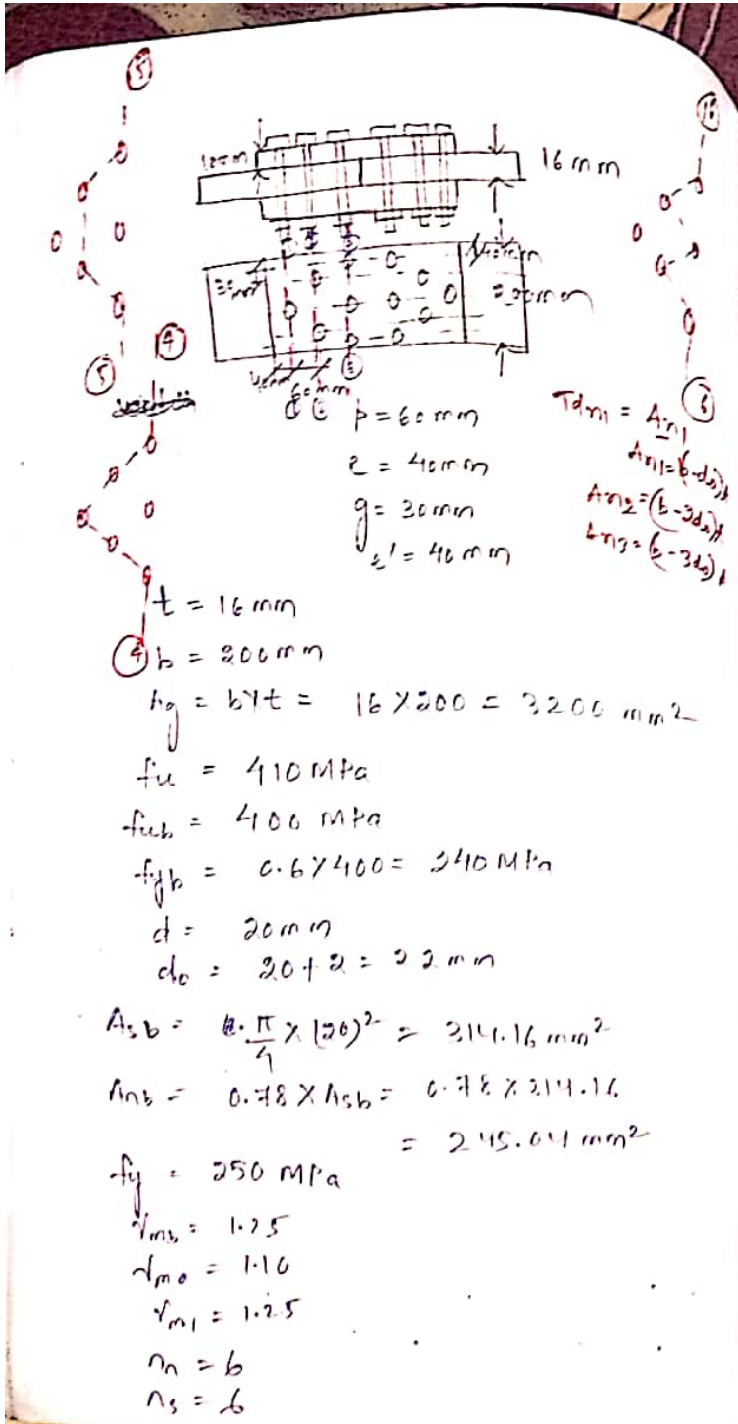 ⑤
16 mm
⑤
④
60 mm
p = 60 mm
e = 40 mm
g = 30 mm
e' = 40 mm
Tdn1 = An1
An1 = (b-d0)t
An2 = (b-3d0)t
An3 = (b-3d0)t
⑥
t = 16 mm
④ b = 200 mm
Ag = b×t = 16 × 200 = 3200 mm²
fu = 410 MPa
fub = 400 MPa
fyb = 0.6 × 400 = 240 MPa
d = 20 mm
do = 20 + 2 = 22 mm
Asb = π/4 × (20)² = 314.16 mm²
Anb = 0.78 × Asb = 0.78 × 314.16
= 245.04 mm²
fy = 250 MPa
γmb = 1.25
γmo = 1.10
γm1 = 1.25
nn = 6
ns = 6